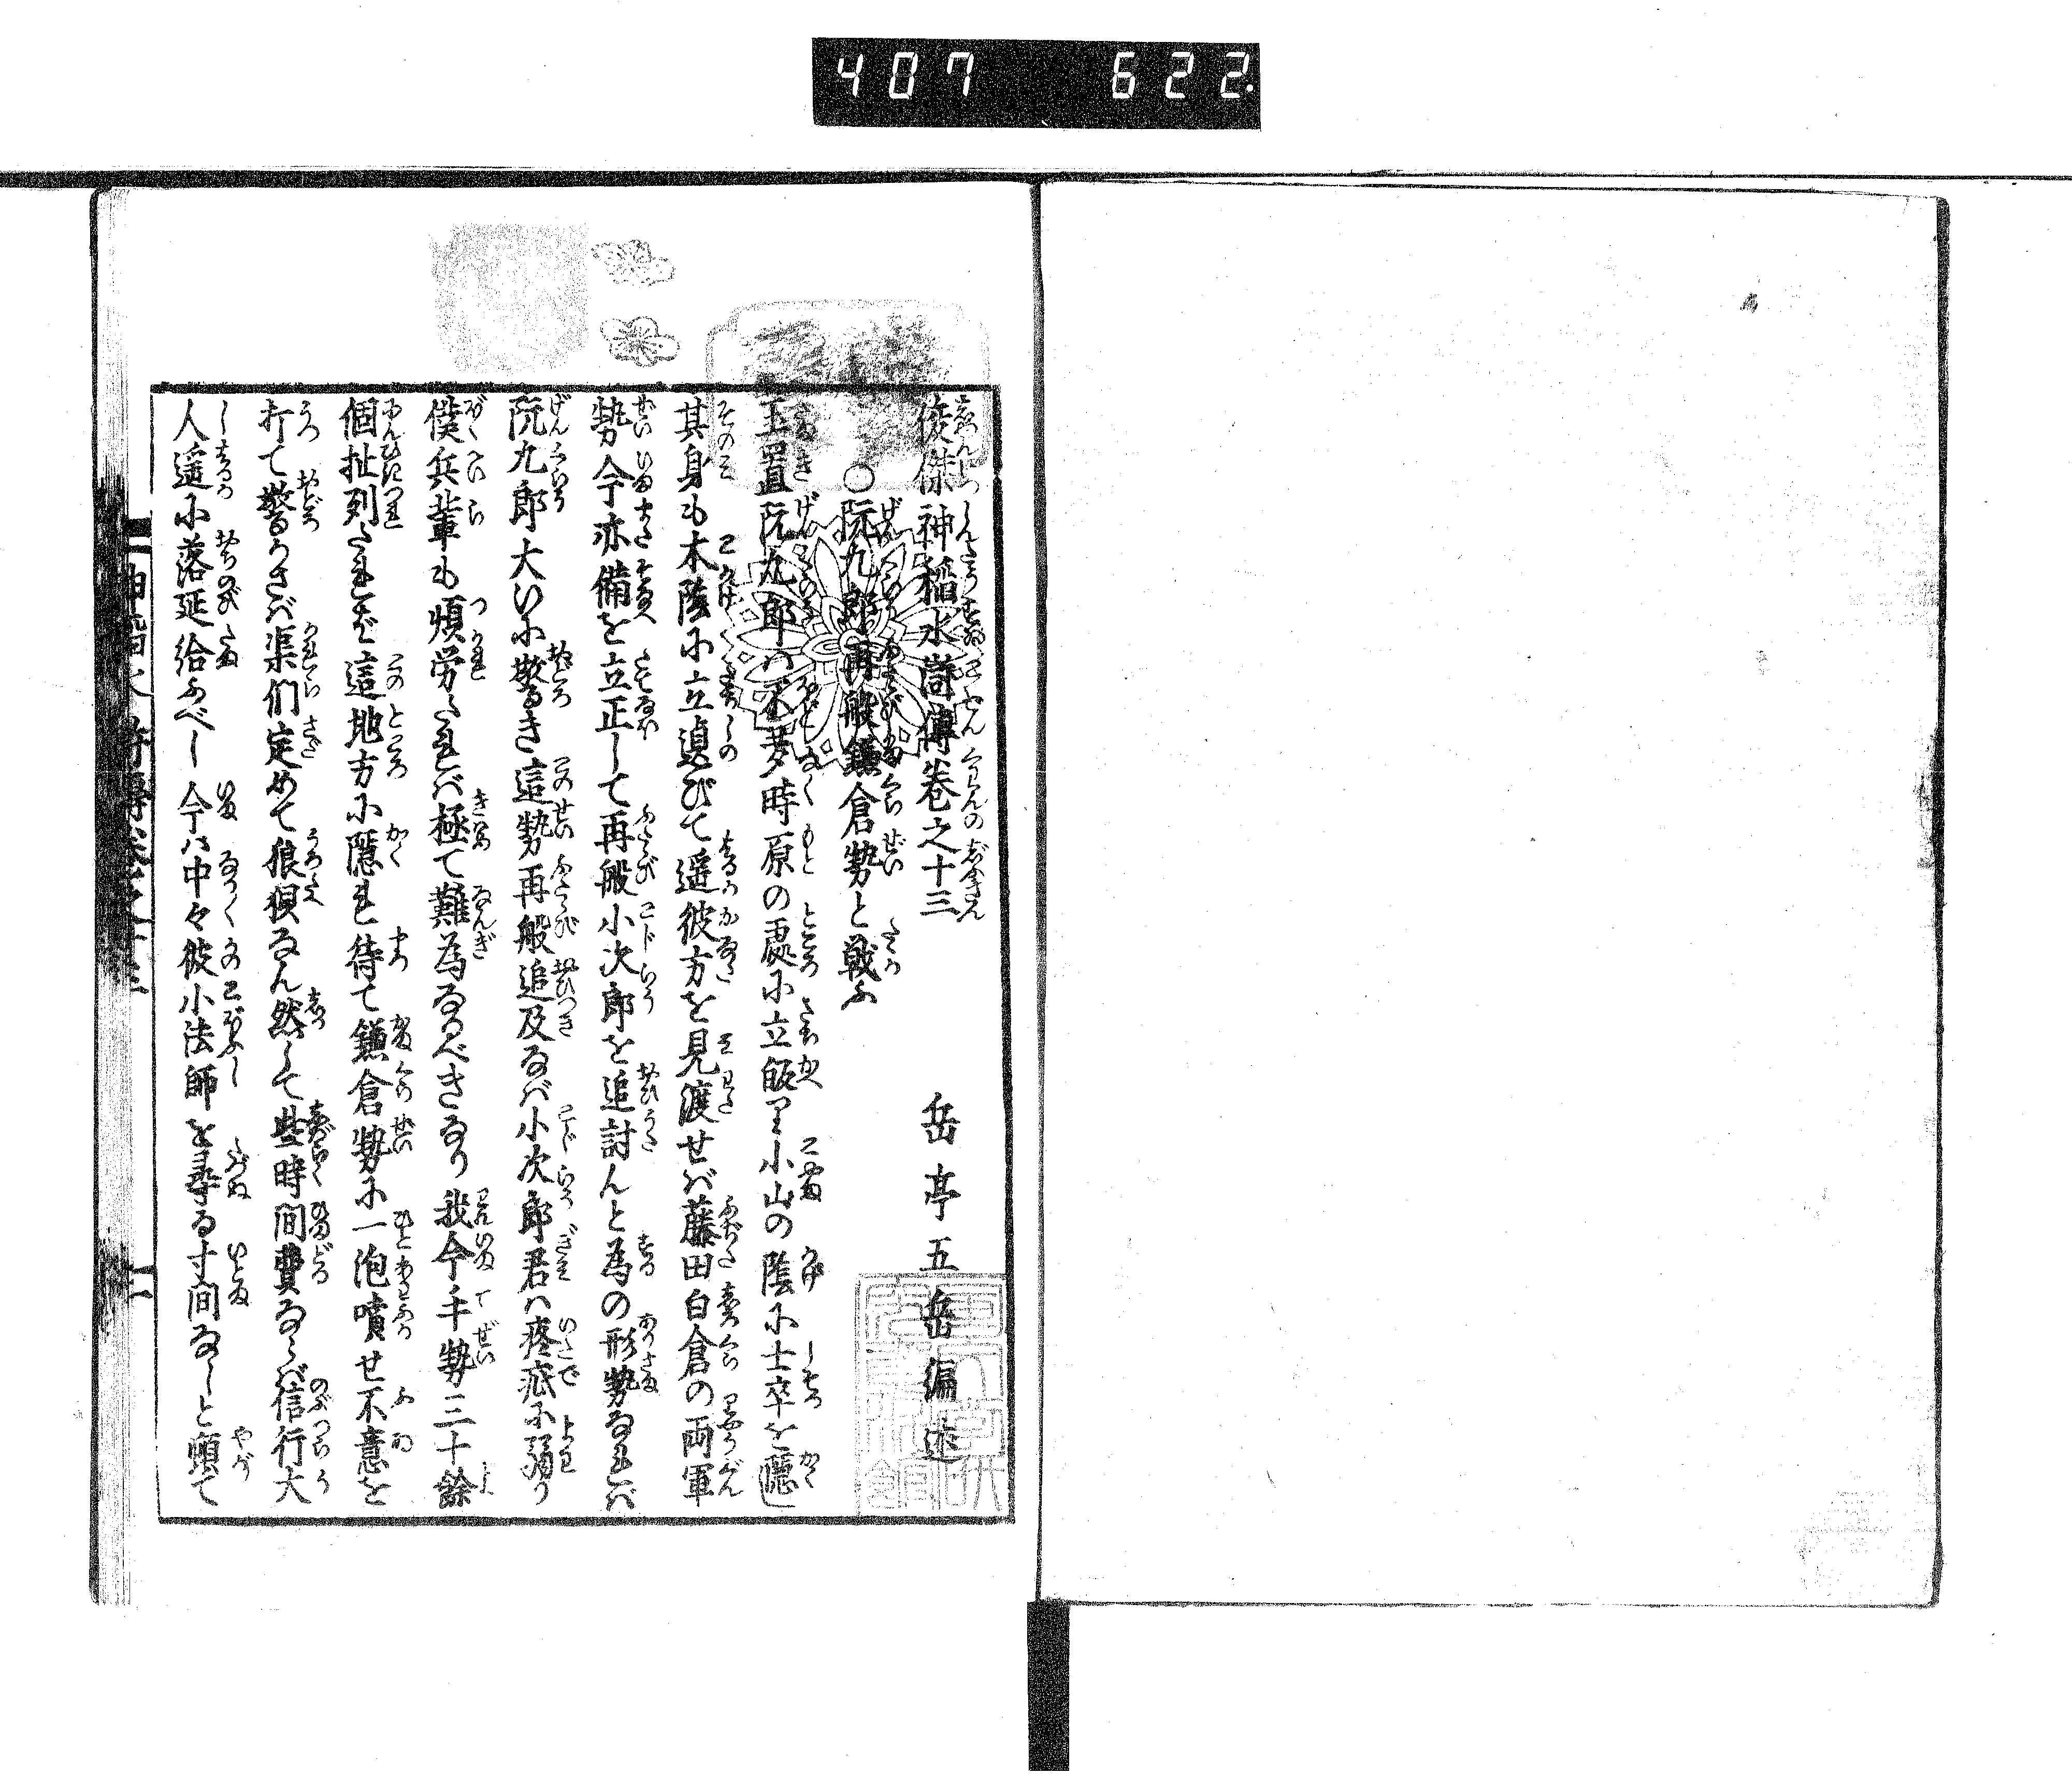 407 622.
俊傑神稲水滸傳巻之十三
岳亭五岳編述
○阮九郎再般鎌倉勢と戦ふ
玉置阮九郎ハ不夛時原の處に立皈り小山の陰に士卒を隱し
其身も木蔭に立退びて遥彼方を見渡せバ藤田白倉の両軍
勢今亦備を立正して再般小次郎を追討んと為の形勢なれバ
阮九郎大いに驚き這勢再般追及なバ小次郎君ハ疼痂に弱り
僕兵輩も煩労たれバ極て難為なるべきなり我今手勢三十餘
個扯列たれど這地方に隱れ待て鎌倉勢に一泡噴せ不意を
打て驚かさバ渠們定めて狼狽なん然して些時間費なバ信行大
人遥に落延給ふべし今ハ中々彼小法師を尋る寸間なしと頓て